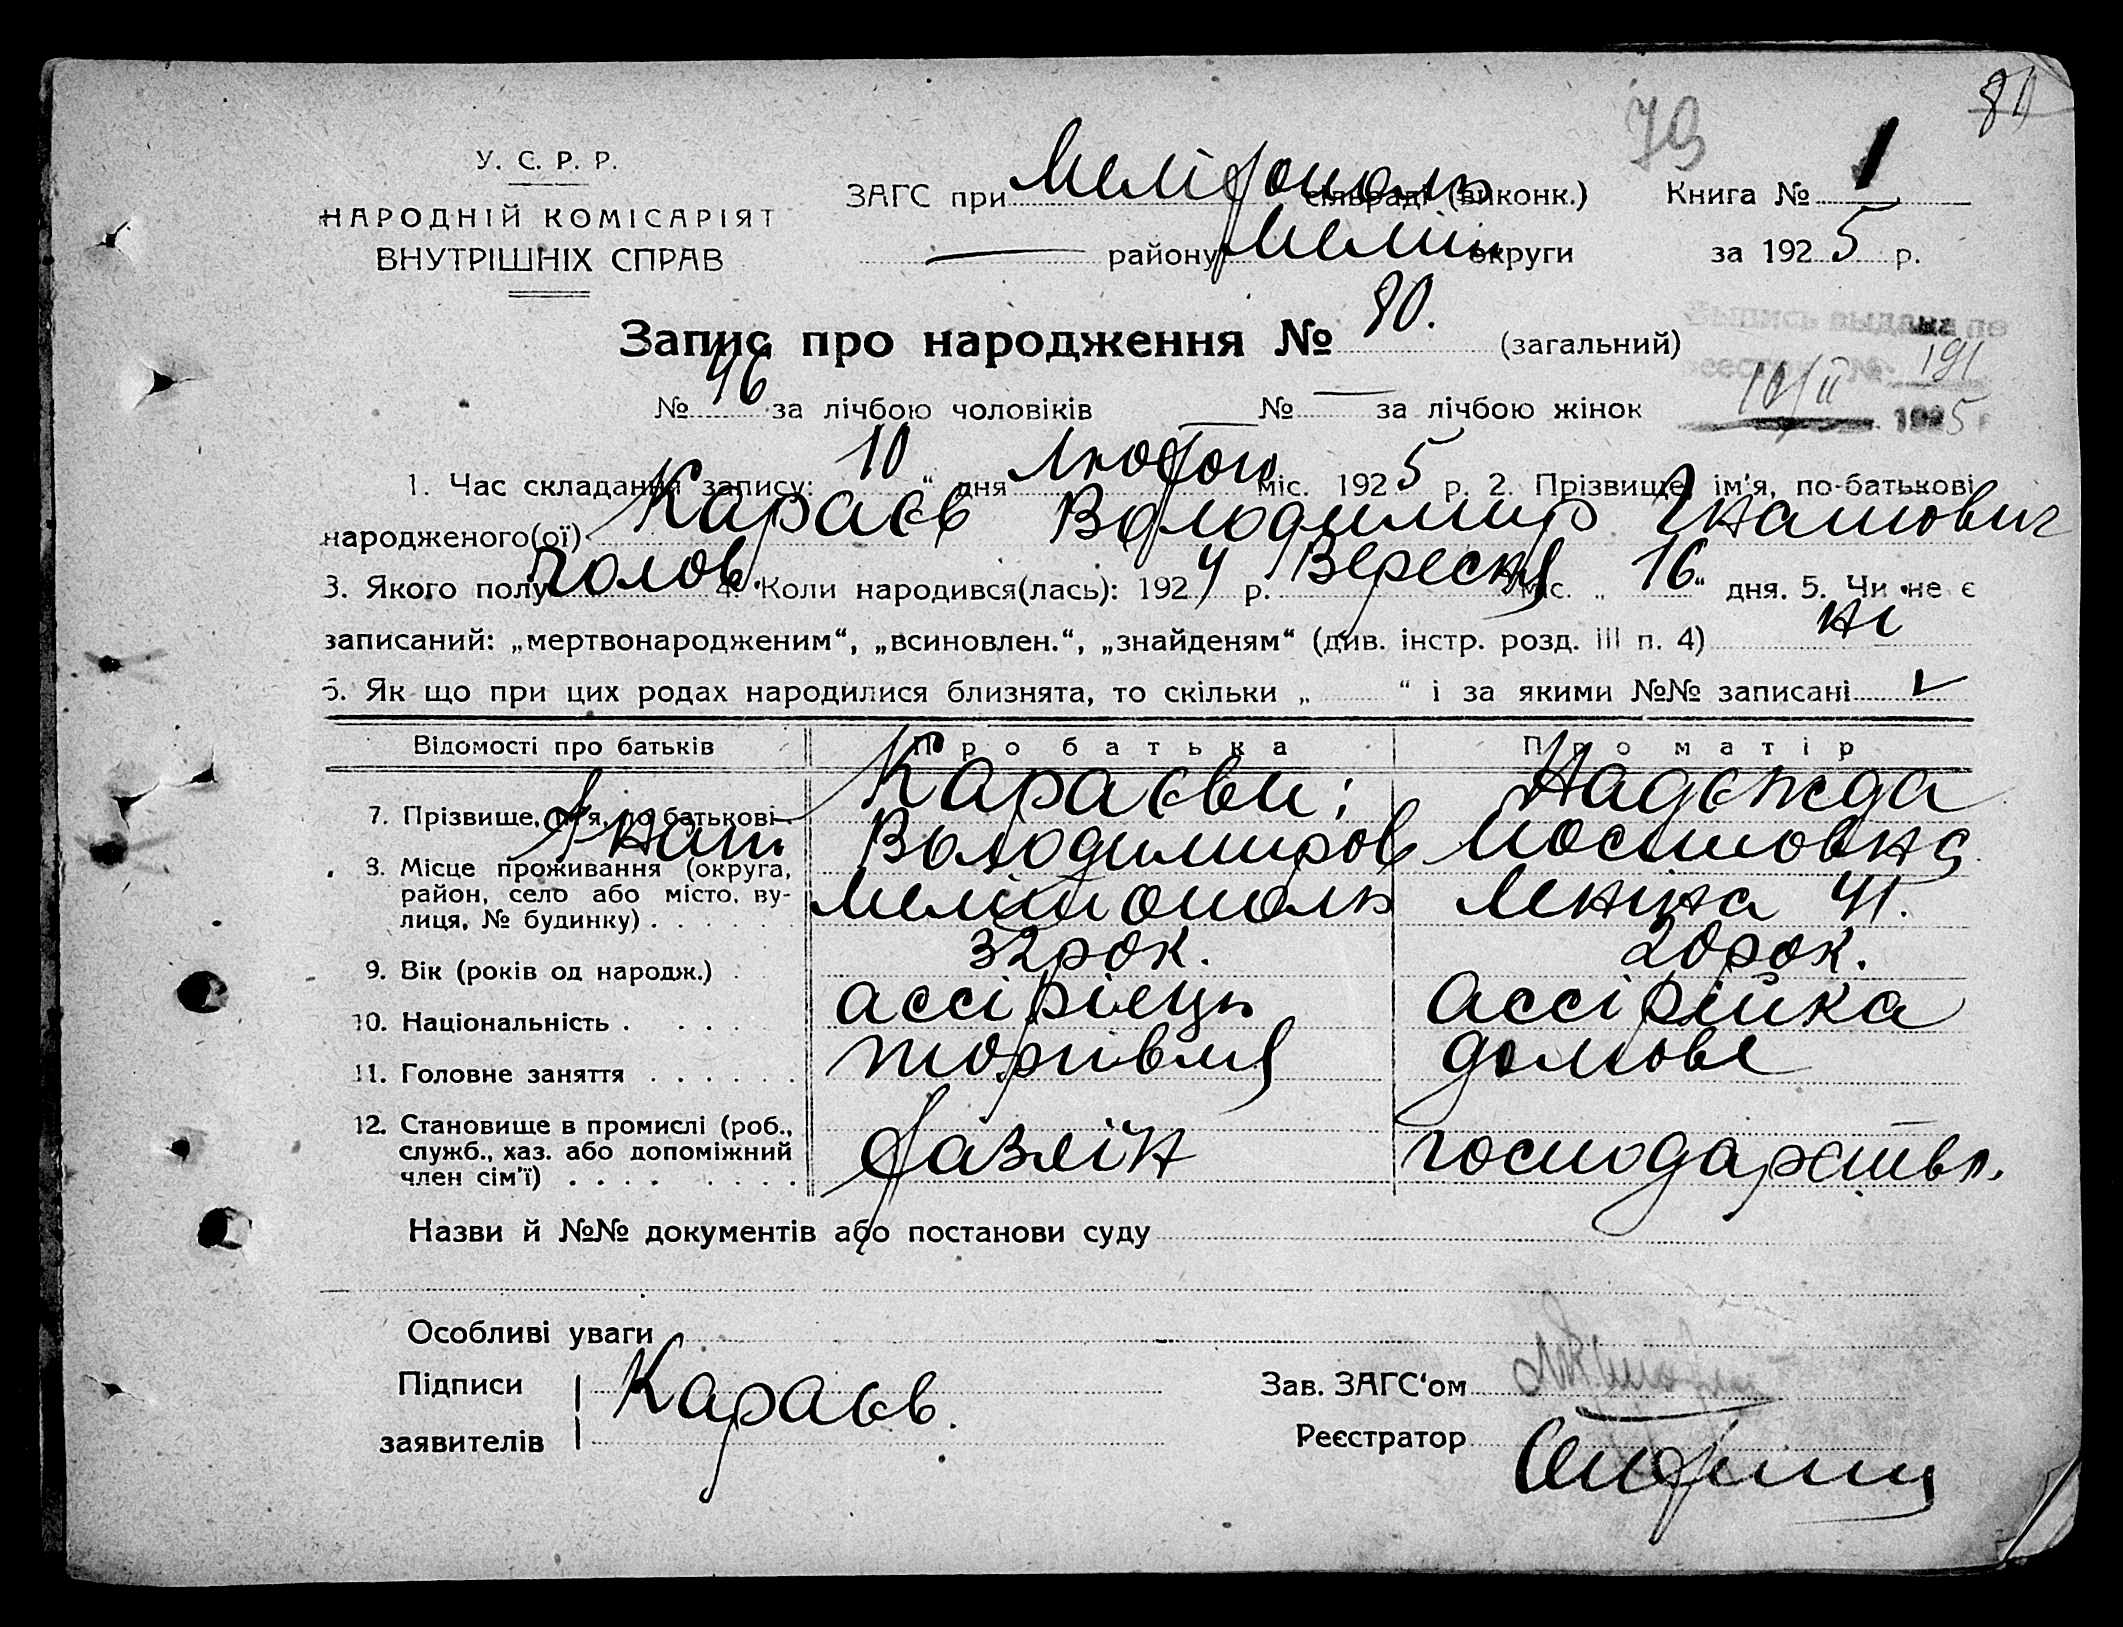 79 80
У. С. Р. Р.
НАРОДНІЙ КОМІСАРІЯТ
ВНУТРІШНІХ СПРАВ
ЗАГС при Мелітополь сільраді (виконк.) Книга № 1
району Меліт. округи за 1925 р.
Запис про народження № 80. (загальний)
Выпись выдана по
реестру № 191
10/II 1925 г
№ 46 за лічбою чоловіків № — за лічбою жінок
1. Час складання запису: 10 “ дня Лютого міс. 1925 р. 2. Прізвище, ім'я, по-батькові
народженого(ої) Караєв Володимир Гнатович
3. Якого полу чолов. 4. Коли народився(лась): 1924 р. Вересня міс. „ 16 “ дня. 5. Чи не є
записаний: „мертвонародженим“, „всиновлен.“, „знайденям“ (див. інстр. розд. III п. 4) ні
6. Як що при цих родах народилися близнята, то скільки „ “ і за якими №№ записані
Відомості про батьків Про батька Про матір
7. Прізвище, ім'я, по батькові Гнат Караєви: Надежда
Володимиров
8. Місце проживання (округа,
район, село або місто, ву-
лиця, № будинку) Мелітополь Леніна 41.
9. Вік (років од народж.) 32 рок. 20 рок.
10. Національність ассірієць Ассірійка
11. Головне заняття торгівля домове
12. Становище в промислі (роб.,
служб., хаз. або допоміжний
член сім'ї) господарство.
Назви й №№ документів або постанови суду
Особливі уваги
Підписи Караєв. Зав. ЗАГС‘ом
заявителів Реєстратор